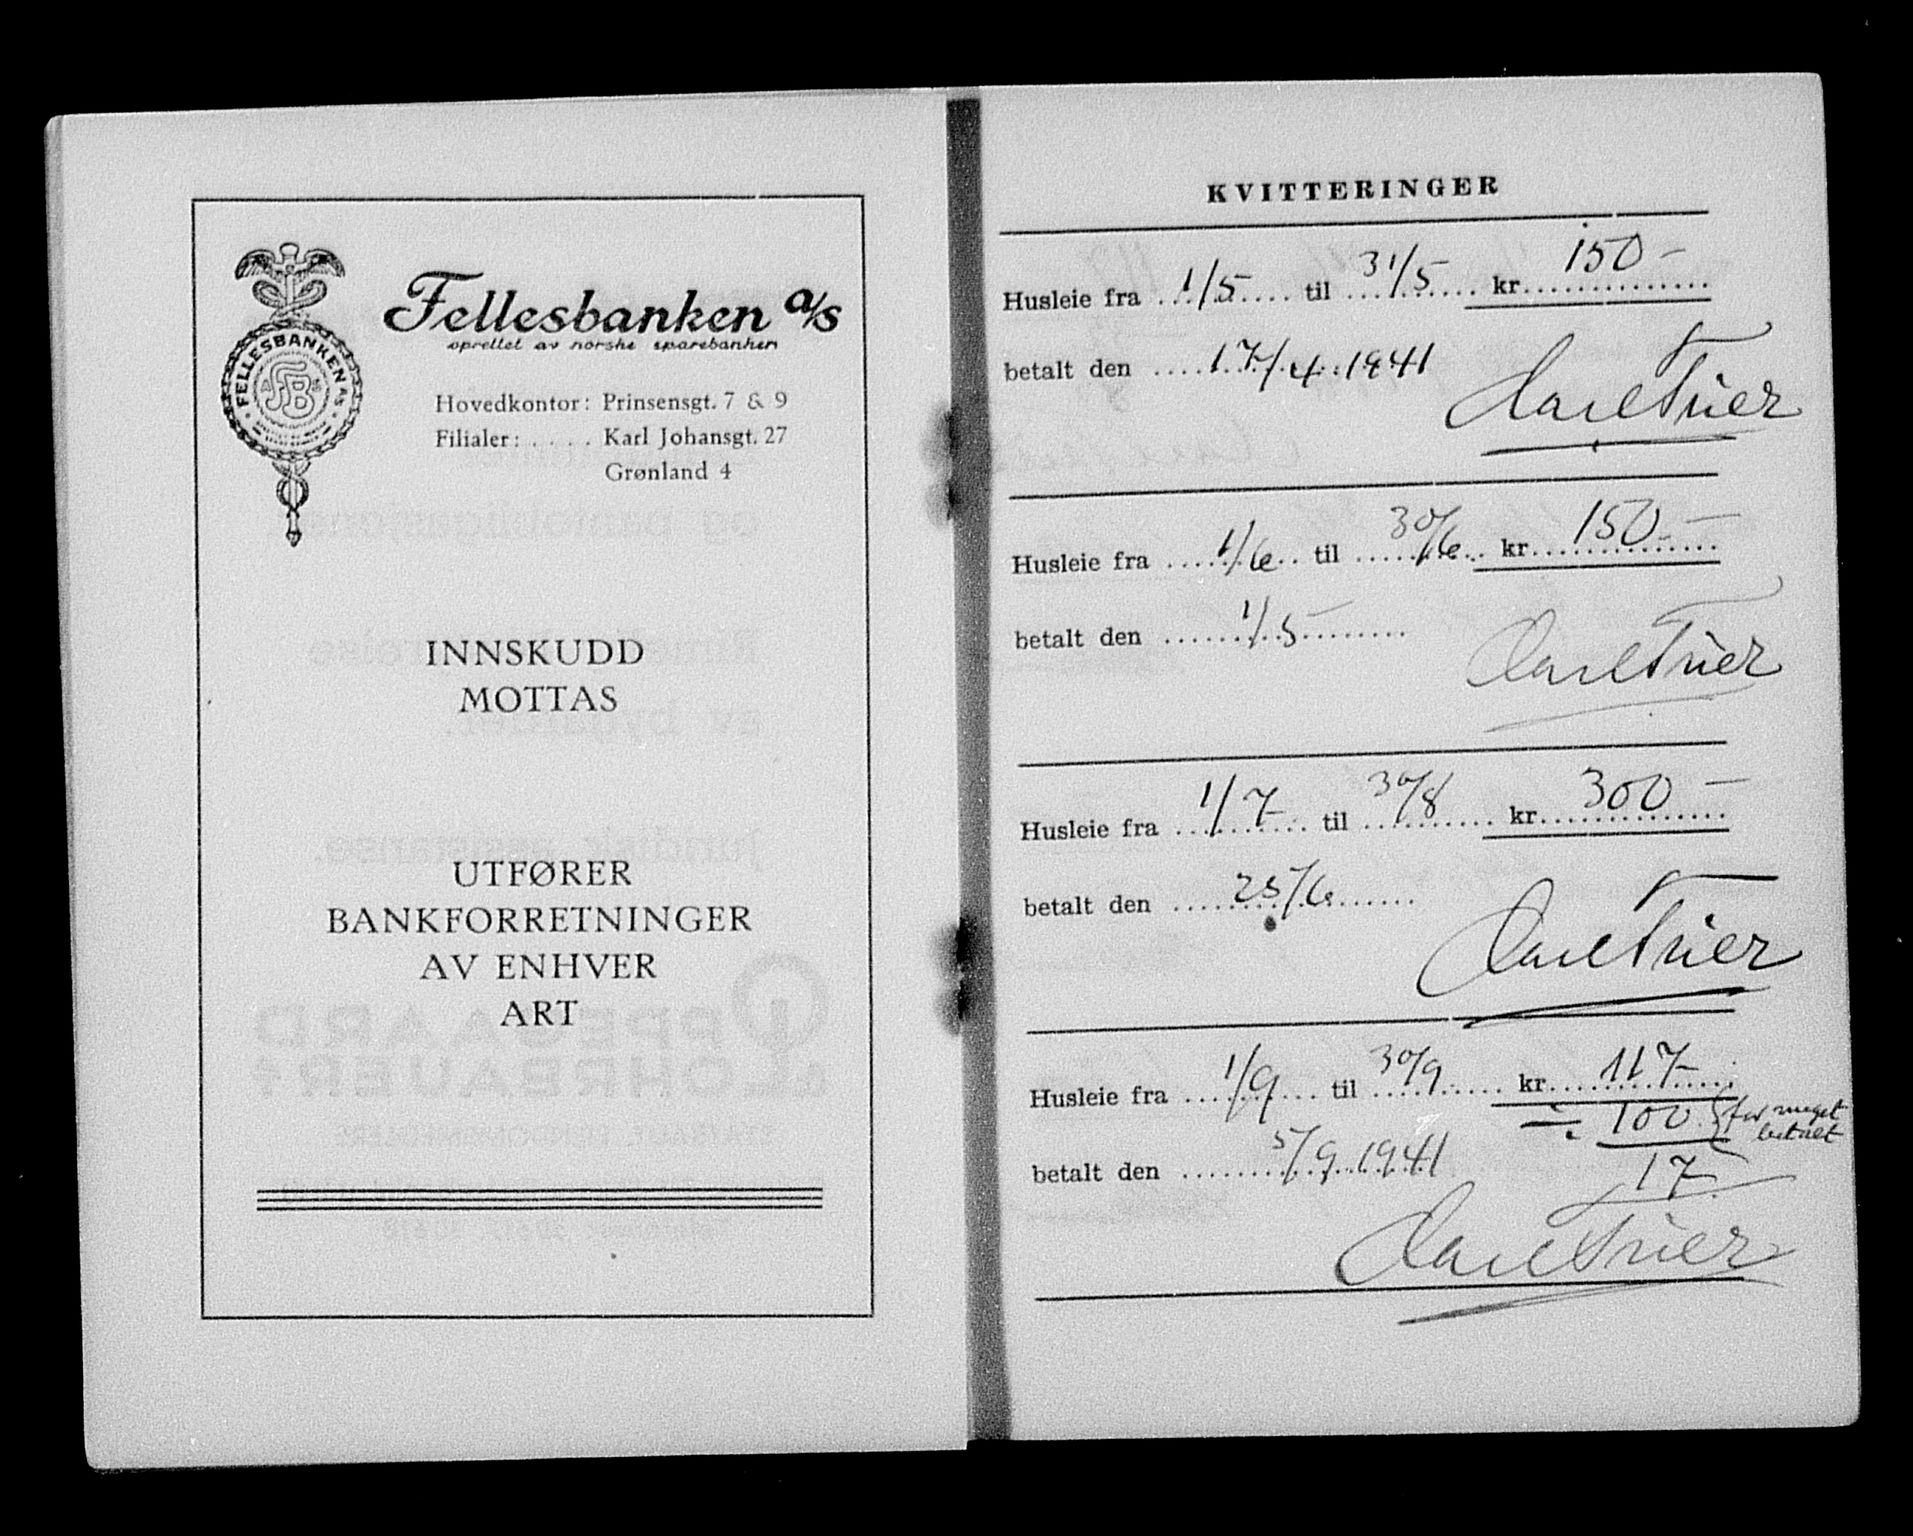 Fellesbanken a/s
oprettet av norske sparebanken
FELLESBANKEN A/S
A FSB S
Hovedkontor: Prinsensgt. 7 & 9
Filialer: .... Karl Johansgt. 27
Grønland 4
INNSKUDD
MOTTAS
UTFØRER
BANKFORRETNINGER
AV ENHVER
ART
KVITTERINGER
Husleie fra 1/5 til 31/5 kr. 150-
betalt den 17/4. 1941
Carl Trier
Husleie fra 1/6 til 30/6 kr. 150-
betalt den 1/5
Carl Trier
Husleie fra 1/7 til 30/8 kr. 300-
betalt den 25/6
Carl Trier
Husleie fra 1/9 til 30/9 kr. 117-
÷ 100. for meget
betalt
betalt den 5/9 1941 17-
Carl Trier